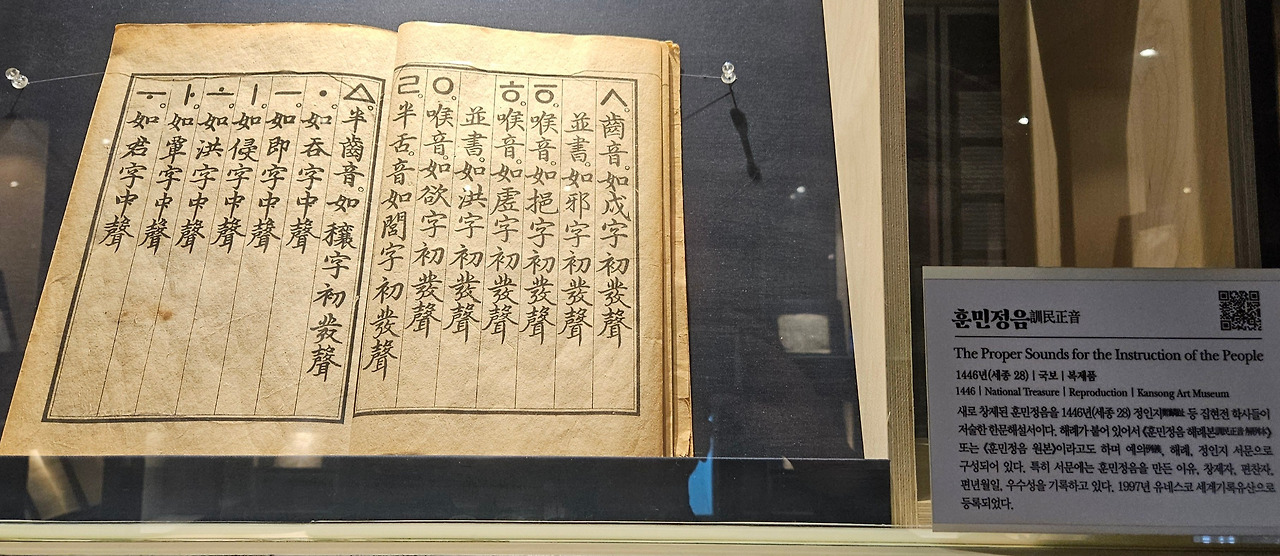 ㅅ。齒音。如戌字初發聲
並書。如邪字初發聲
ㆆ。喉音。如挹字初發聲
ㅎ。喉音。如虛字初發聲
並書。如洪字初發聲
ㅇ。喉音。如欲字初發聲
ㄹ。半舌音。如閭字初發聲
ㅿ。半齒音。如穰字初發聲
ㆍ。如呑字中聲
ㅡ。如即字中聲
ㅣ。如侵字中聲
ㅗ。如洪字中聲
ㅏ。如覃字中聲
ㅜ。如君字中聲
훈민정음訓民正音
The Proper Sounds for the Instruction of the People
1446년(세종 28) | 국보 | 복제품
1446 | National Treasure | Reproduction | Kansong Art Museum
새로 창제된 훈민정음을 1446년(세종 28) 정인지 등 집현전 학사들이
저술한 한문해설서이다. 해례가 붙어 있어서 《훈민정음 해례본》
또는 《훈민정음 원본》이라고도 하며 예의, 해례, 정인지 서문으로
구성되어 있다. 특히 서문에는 훈민정음을 만든 이유, 창제자, 편찬자,
편년월일, 우수성을 기록하고 있다. 1997년 유네스코 세계기록유산으로
등록되었다.